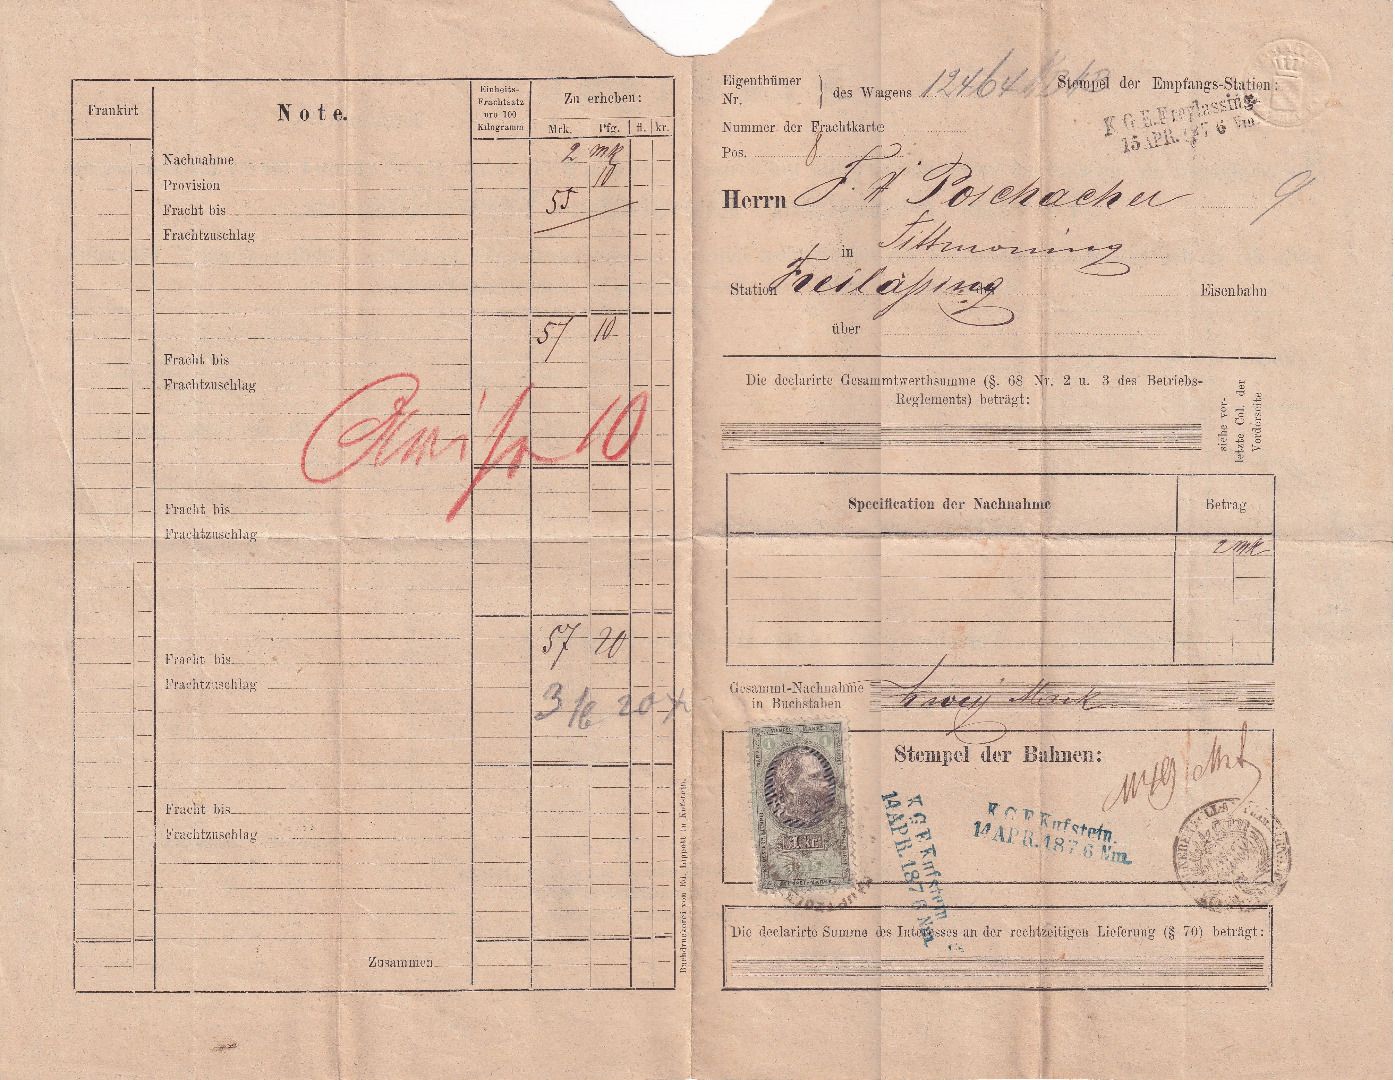 Frankirt
Note.
Einheits-
Frachtsatz
pro 100
Kilogramm
Zu erheben:
Mrk. Pfg. fl. kr.
Nachnahme 2 mk
Provision 10
Fracht bis 55
Frachtzuschlag
57 10
Fracht bis
Frachtzuschlag
10
Fracht bis
Frachtzuschlag
57 20
Fracht bis
Frachtzuschlag
3 20
Fracht bis
Frachtzuschlag
Zusammen
Buchdruckerei von Ed. Lippott in Kufstein.
Eigenthümer
Nr.
des Wagens 12464
Stempel der Empfangs-Station:
K.G.E. Freylassing
15 APR. 187 6 Nm.
Nummer der Frachtkarte
Pos. 8
Herrn F. X Poschacher
9
in Tittmoning
Station Freilaßing
Eisenbahn
über
Die declarirte Gesammtwerthsumme (§. 68 Nr. 2 u. 3 des Betriebs-
Reglements) beträgt:
siehe vor-
letzte Col. der
Vorderseite
Specification der Nachnahme
Betrag
2 mk
Gesammt-Nachnahme
in Buchstaben
zwey Mark
Stempel der Bahnen:
1 KR
K.G.E Kufstein
14 APR. 187 6 Nm.
K.G.E Kufstein.
14 APR. 187 6 Nm.
Die declarirte Summe des Interesses an der rechtzeitigen Lieferung (§ 70) beträgt: